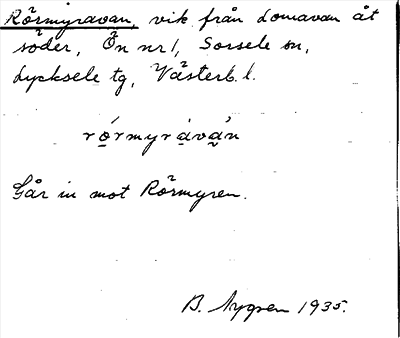 Rörmyravan, vik från Lomavan åt
söder, Ön nr 1, Sorsele sn,
Lycksele tg, Västerb. l.
rǫ́rmyrạvạ̀n
Går in mot Rörmyren.
B. Nygren 1935.